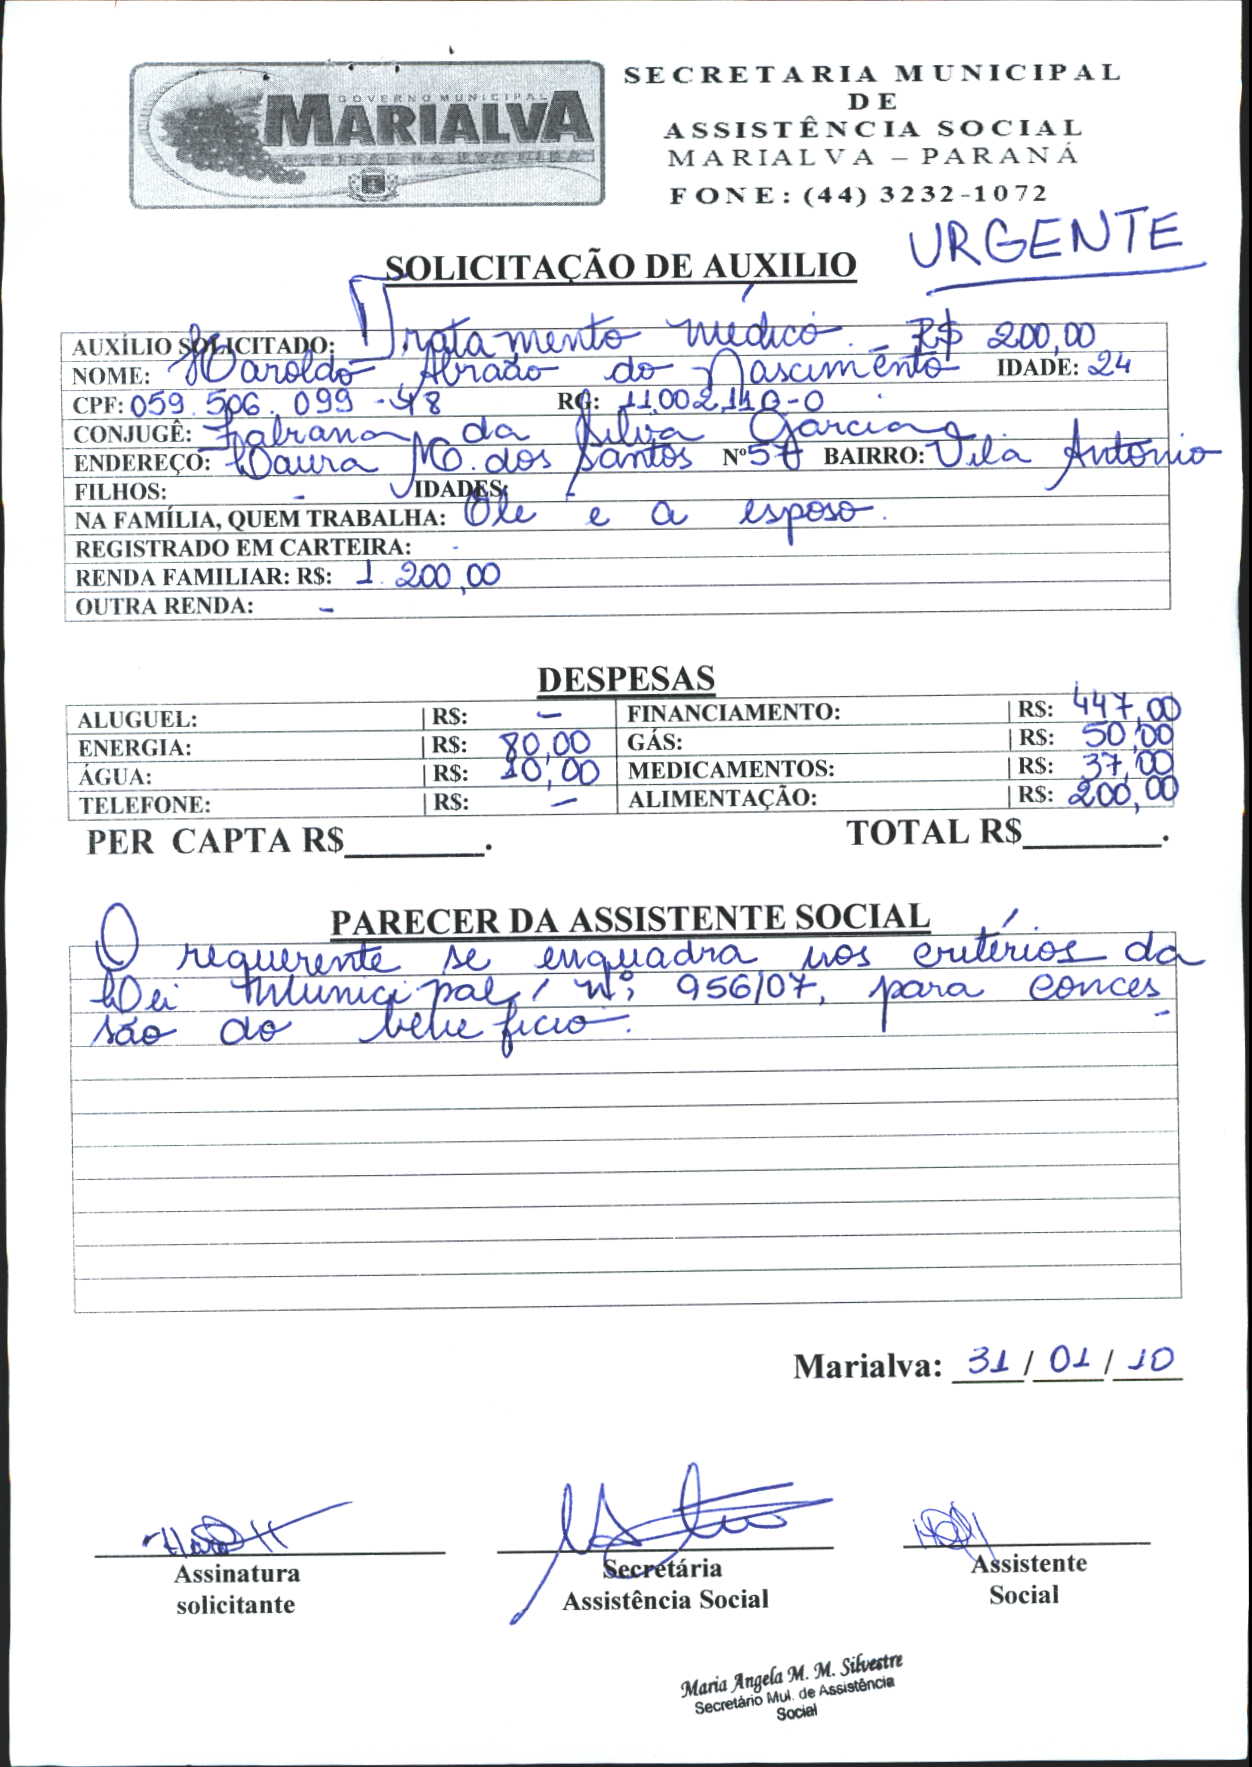 GOVERNO MUNICIPAL
MARIALVA
CAPITAL DA UVA FINA
SECRETARIA MUNICIPAL
DE
ASSISTÊNCIA SOCIAL
MARIALVA – PARANÁ
FONE: (44) 3232-1072
URGENTE
SOLICITAÇÃO DE AUXILIO
AUXÍLIO SOLICITADO: Tratamento médico. - R$ 200,00
NOME: Haroldo Abraão do Nascimento IDADE: 24
CPF: 059.506.099-48 RG: 11.002.110-0
CONJUGÊ: Fabiana da Silva Garcia
ENDEREÇO: Laura M. dos Santos Nº 57 BAIRRO: Vila Antonio
FILHOS: - IDADES: -
NA FAMÍLIA, QUEM TRABALHA: Ele e a esposo.
REGISTRADO EM CARTEIRA: -
RENDA FAMILIAR: R$: 1.200,00
OUTRA RENDA: -
DESPESAS
ALUGUEL: | R$: - FINANCIAMENTO: | R$: 447,00
ENERGIA: | R$: 80,00 GÁS: | R$: 50,00
ÁGUA: | R$: 10,00 MEDICAMENTOS: | R$: 37,00
TELEFONE: | R$: - ALIMENTAÇÃO: | R$: 200,00
PER CAPTA R$________. TOTAL R$________.
PARECER DA ASSISTENTE SOCIAL
O requerente se enquadra nos critérios da
Lei Municipal, nº 956/07, para conces
são do benefício.
Marialva: 31 / 01 / 10
Assinatura
solicitante
Secretária
Assistência Social
Assistente
Social
Maria Angela M. M. Silvestre
Secretário Mul. de Assistência
Social